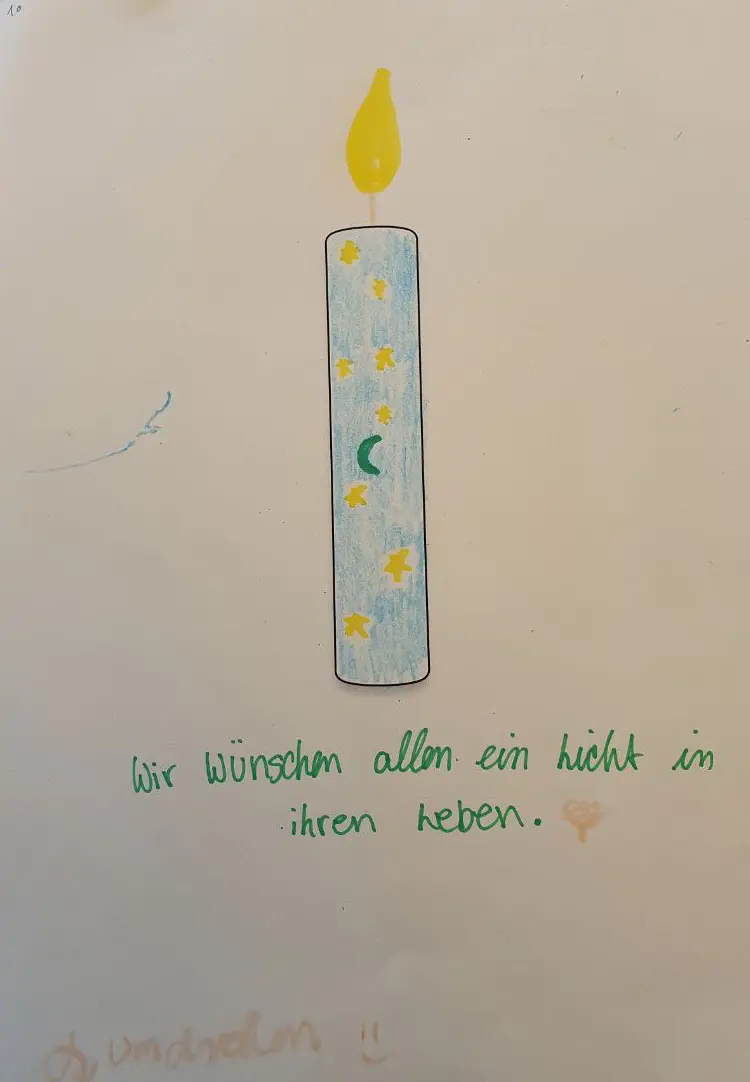 10
Wir wünschen allen ein Licht in
ihren Leben.